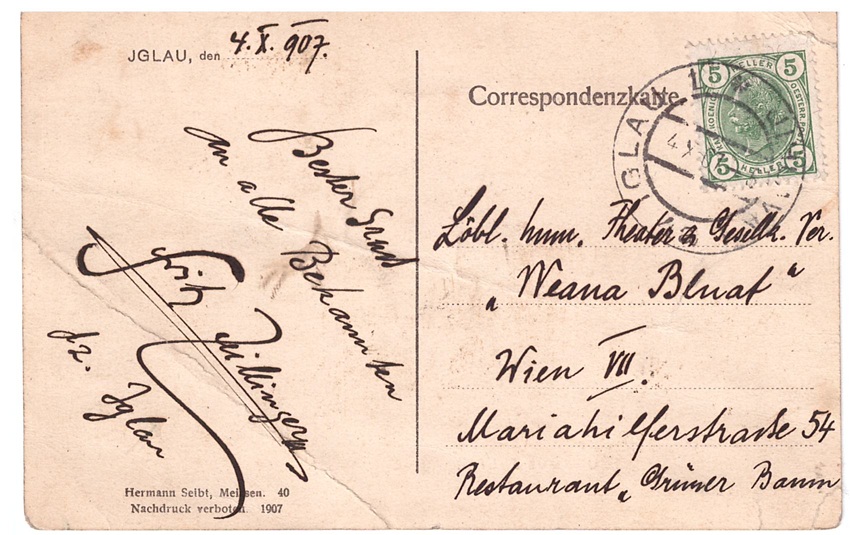 JGLAU, den 4. X. 907.
Bester Gruß
an alle Bekannten
Fritz
dz. Iglau
Hermann Seibt, Meissen. 40
Nachdruck verboten. 1907
Correspondenzkarte
5 HELLER 5
5 HELLER 5
IGLAU 1
4 X
Löbl. hum. Theater & Gesellk. Ver.
„Weana Bluat“
Wien VII.
Mariahilferstraße 54
Restaurant „Grüner Baum